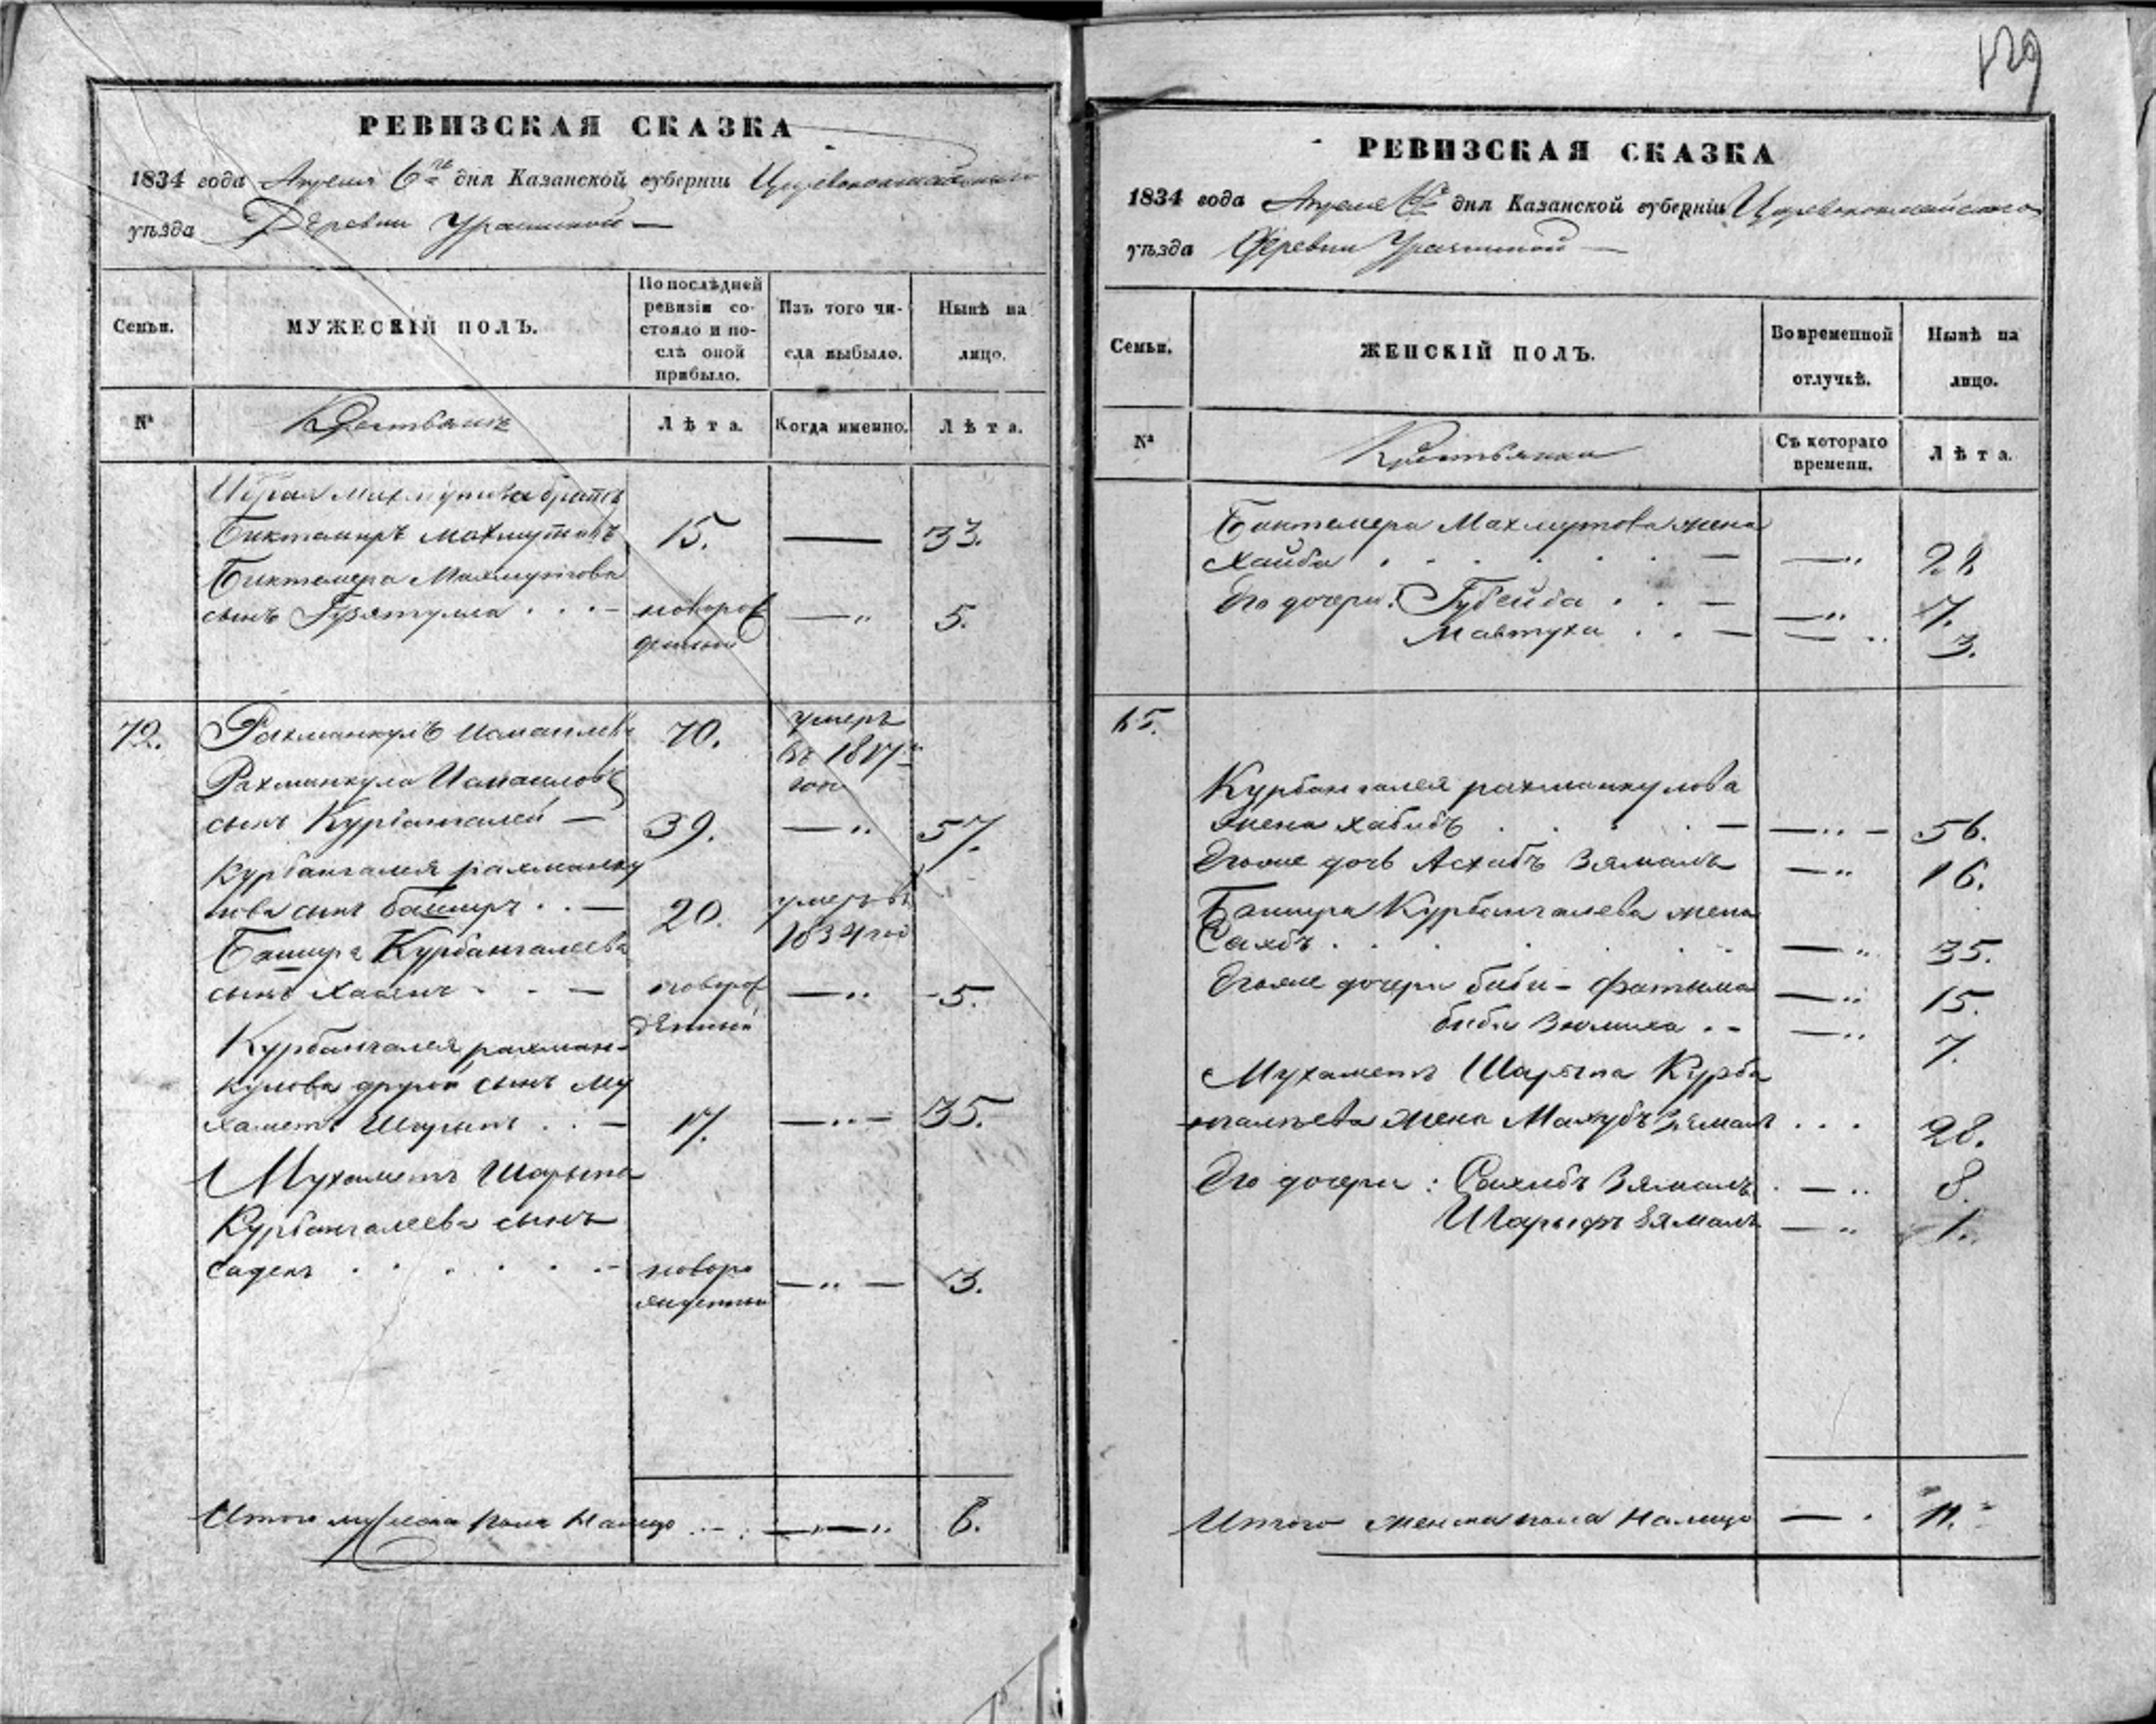 129
РЕВИЗСКАЯ СКАЗКА
1834 года Апреля 6го дня Казанской губерніи Царевококшайскаго
уѣзда Деревни
Семьи.
МУЖЕСКІЙ ПОЛЪ.
По послѣдней ревизіи со-
стояло и по-
слѣ оной
прибыло.
Изъ того чи-
сла выбыло.
Нынѣ на
лицо.
№
Лѣта.
Когда именно.
Лѣта.
Махмутова братъ
Биктемиръ Махмутовъ 15. — 33.
Биктемера Махмутова
сынъ новорож — „ 5.
денный
72. Рахманкулъ Исмаилевъ 70. умеръ
въ 1817м
Рахманкула Исмаилова
годе
сынъ Курбангалей — 39. — „ 57.
Курбангалея рахманку
лова сынъ баширъ . . — 20. умеръ въ
1834 год
Башира Курбангалеева
сынъ . . — новорож — „ 5.
денный
Курбангалея рахман-
кулова другой сынъ Му
хаметъ Шарыпъ . . — 17. — „ — 35.
Мухаметъ Шарыпа
Курбангалеева сынъ
садекъ . . . . . . — новоро
жденный — „ — 3.
Итого мужеска пола на лицо — „ 6.
РЕВИЗСКАЯ СКАЗКА
1834 года Апреля 6го дня Казанской губерніи Царевококшайскаго
уѣзда Деревни
Семьи.
ЖЕНСКІЙ ПОЛЪ.
Во временной
отлучкѣ.
Нынѣ на
лицо.
№
Крестьянки
Съ котораго
времени.
Лѣта.
Биктемера Махмутова жена
. . . . . — — „ 28.
Его дочери: Губейда . . — — „ 7.
Мавтуха . . — — „ 3.
65.
Курбангалея рахманкулова
жена хабибъ . . . — — „ — 56.
Егоже дочь Асхабъ Зямалъ — „ 16.
Башира Курбангалеева жена
Сахбъ . . . . . — „ 35.
Егоже дочери биби-фатыма — „ 15.
биби . — — „ 7.
Мухаметъ Шарыпа Курба
нгалѣева жена Махубъ Зямалъ . . . 28.
Его дочери: Сахибъ Зямалъ . — „ 8.
Шарыфъ Зямалъ — „ 1.
Итого женска пола на лицо — . 11.